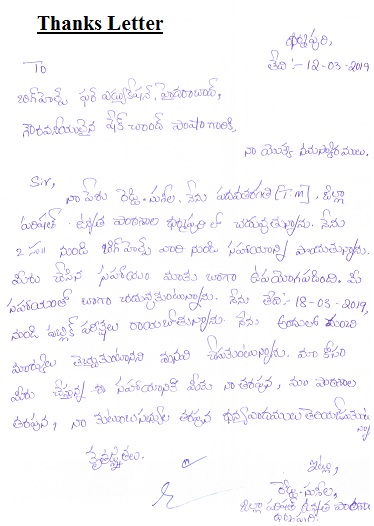 Thanks Letter
ధర్మపురి,
తేది:- 12-03-2019
To
బిగ్‌హెల్ప్ ఫర్ ఎడ్యుకేషన్, హైదరాబాద్,
గౌరవనీయులైన షేక్ చాంద్ పాషా గారికి,
నా యొక్క నమస్కారములు.
Sir,
నా పేరు రెడ్డి. సుశీల. నేను పదవతరగతి [T.M], జిల్లా
పరిషత్ ఉన్నత పాఠశాల ధర్మపురి లో చదువుతున్నాను. నేను
2 సం|| నుండి బిగ్‌హెల్ప్ వారి నుండి సహాయాన్ని పొందుతున్నాను.
మీరు చేసిన సహాయం మాకు బాగా ఉపయోగపడింది. మీ
సహాయంతో బాగా చదువుకుంటున్నాను. నేను తేది:- 18-03-2019,
నుండి పబ్లిక్ పరీక్షలు రాయబోతున్నాను. నేను అందులో మంచి
మార్కులు తెచ్చుకుంటానని మనవి చేసుకుంటున్నాను. మా కోసం
మీరు చేస్తున్న ఈ సహాయానికి మీకు నా తరపున, మా పాఠశాల
తరపున, నా కుటుంబసభ్యుల తరపున ధన్యవాదములు తెలియజేసుకుంటు
న్నాను
కృతజ్ఞతలు.
ఇట్లు,
రెడ్డి. సుశీల,
జిల్లా పరిషత్ ఉన్నత పాఠశాల
ధర్మపురి.